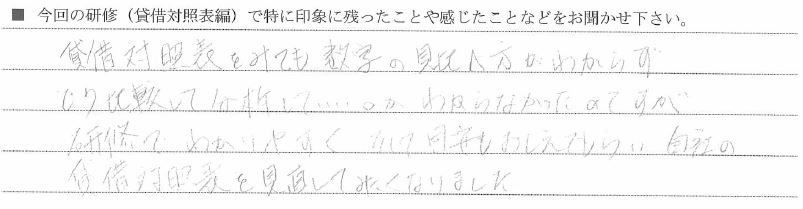 ■ 今回の研修（貸借対照表編）で特に印象に残ったことや感じたことなどをお聞かせ下さい。
貸借対照表をみても数字の見比べ方がわからず
どう比較して分析していいのかわからなかったのですが
研修でわかりやすく 目安もおしえてもらい 自社の
貸借対照表を見直してみたくなりました